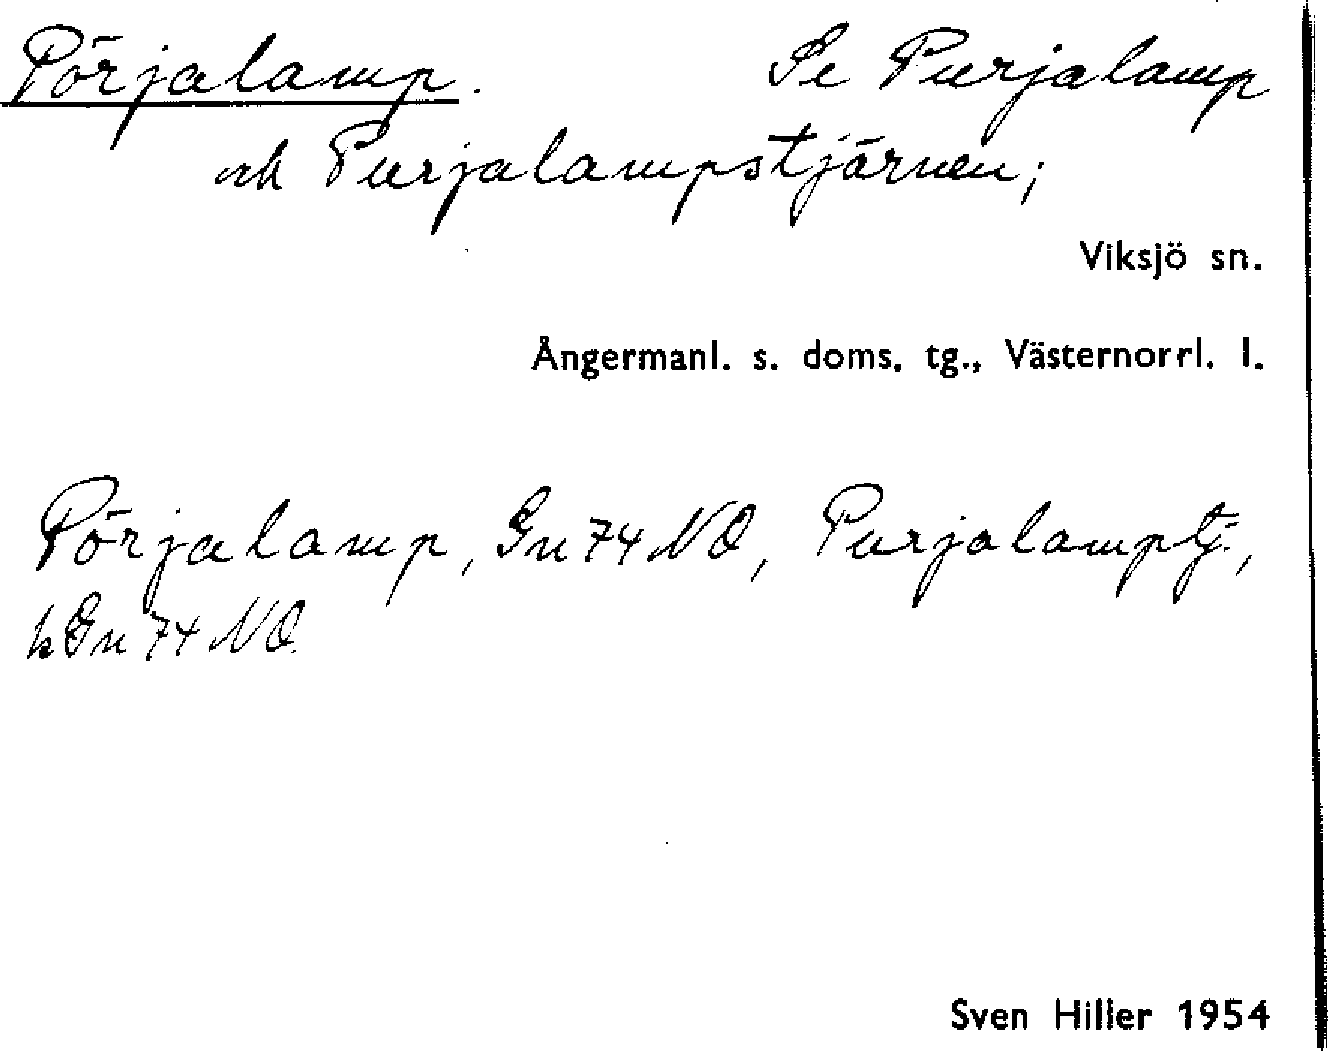 Pörjalamp. Se Purjalamp
och Purjalampstjärnen;
Viksjö sn.
Ångermanl. s. doms. tg., Västernorrl. l.
Pörjalamp, Gn 74 NO, Purjalamptj.,
k Gn 74 NO.
Sven Hiller 1954